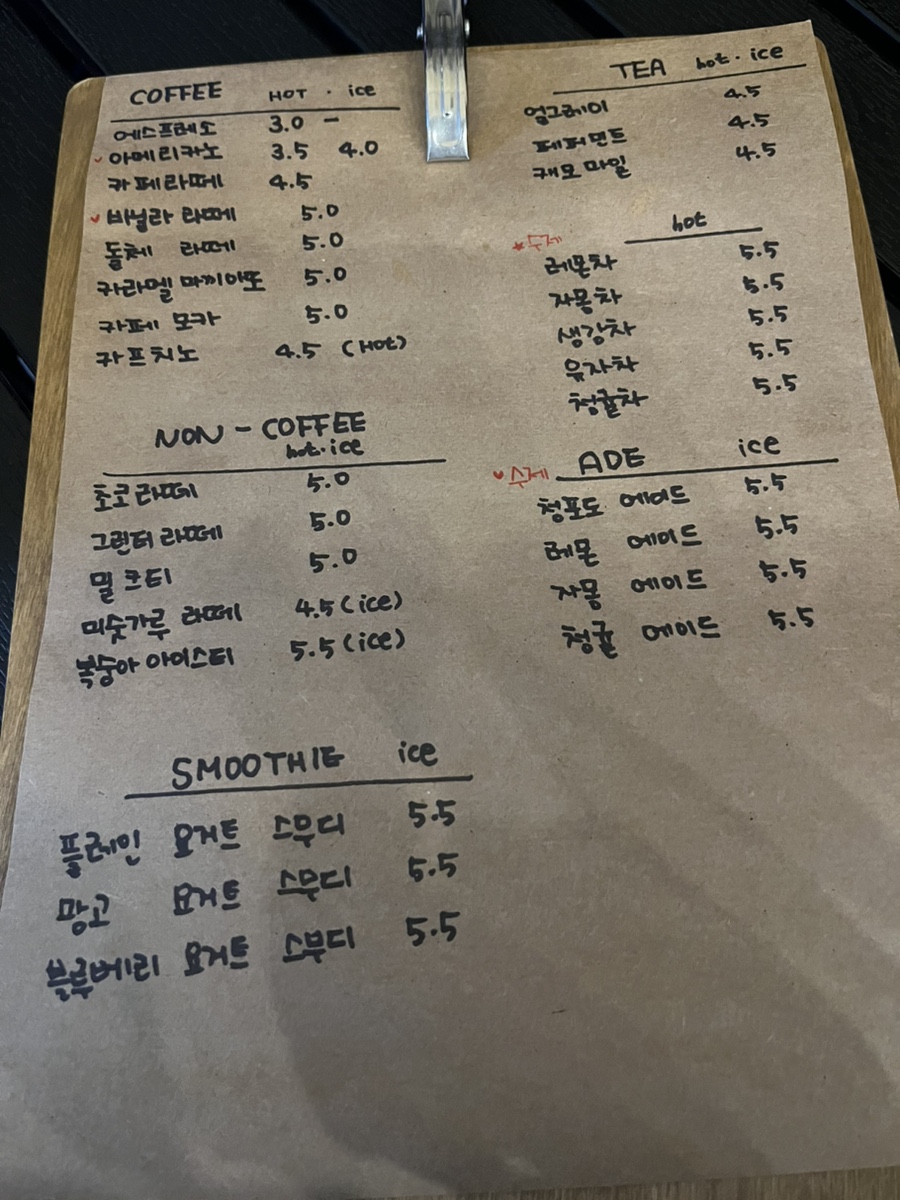 COFFEE HOT · ice
에스프레소 3.0 -
아메리카노 3.5 4.0
카페라떼 4.5
바닐라 라떼 5.0
돌체 라떼 5.0
카라멜 마끼아또 5.0
카페 모카 5.0
카프치노 4.5 (HOt)
NON - COFFEE
hot·ice
초코라떼 5.0
그린티 라떼 5.0
밀크티 5.0
미숫가루 라떼 4.5 (ice)
복숭아 아이스티 5.5 (ice)
SMOOTHIE ice
플레인 요거트 스무디 5.5
망고 요거트 스무디 5.5
블루베리 요거트 스무디 5.5
TEA hot · ice
얼그레이 4.5
페퍼민트 4.5
캐모마일 4.5
수제 hot
레몬차 5.5
자몽차 5.5
생강차 5.5
유자차 5.5
청귤차 5.5
수제 ADE ice
청포도 에이드 5.5
레몬 에이드 5.5
자몽 에이드 5.5
청귤 에이드 5.5